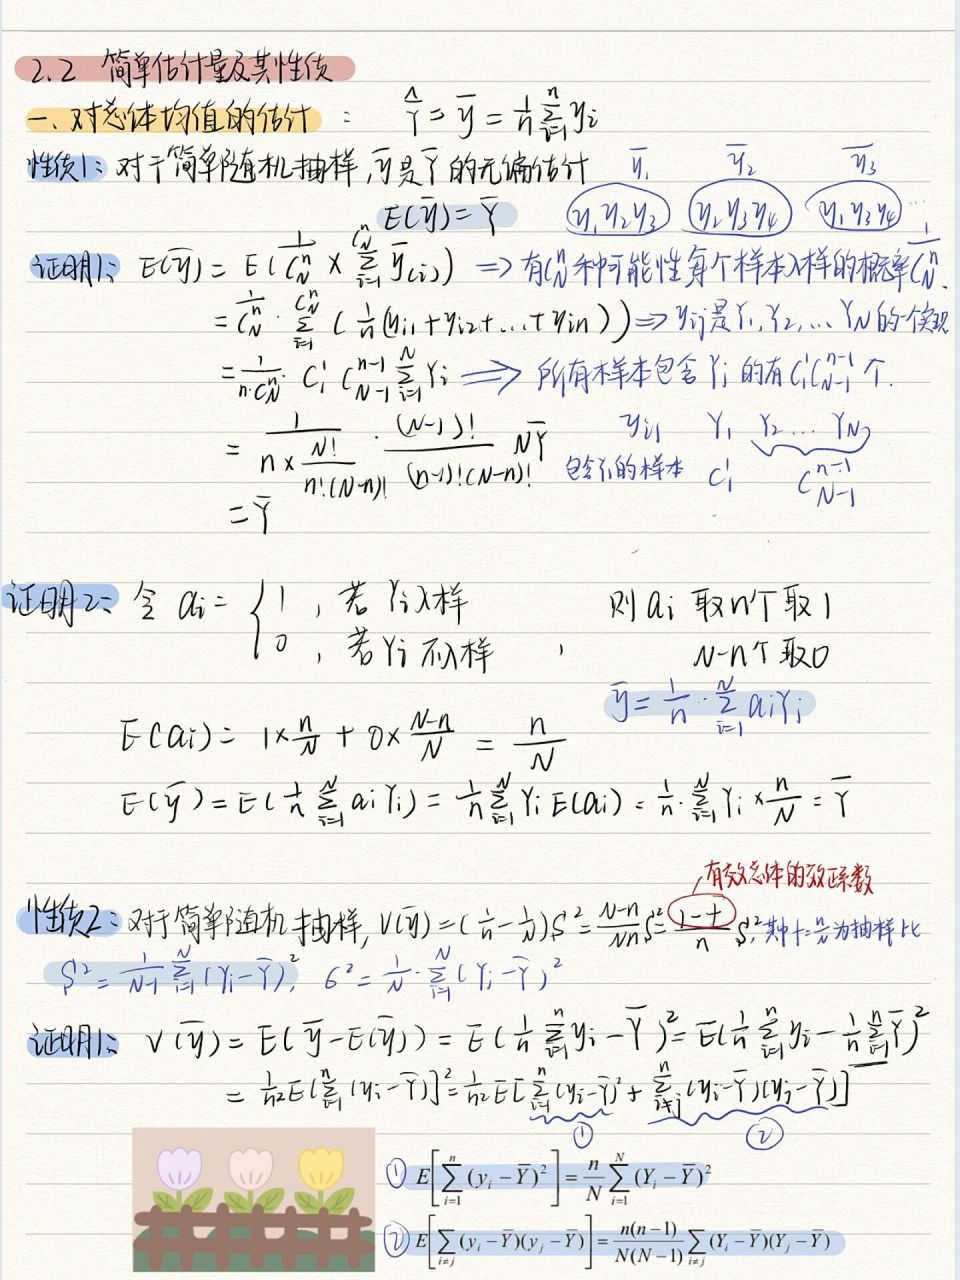 2.2 简单估计量及其性质
一、对总体均值的估计: \hat{Y} = \bar{y} = \frac{1}{n}\sum_{i=1}^{n} y_i
性质1: 对于简单随机抽样, \bar{y}是\bar{Y}的无偏估计 \bar{y}_1 \bar{y}_2 \bar{y}_3
E(\bar{y}) = \bar{Y} y_1y_2y_3 y_2y_3y_4 y_1y_3y_4 …
证明1: E(\bar{y}) = E(\frac{1}{C_N^n} × \sum_{i=1}^{C_N^n} \bar{y}_{(i)}) ⇒ 有C_N^n种可能性每个样本入样的概率\frac{1}{C_N^n}.
= \frac{1}{C_N^n} · \sum_{i=1}^{C_N^n} (\frac{1}{n}(y_{i1}+y_{i2}+…+y_{in})) ⇒ y_{ij}是Y_1,Y_2,…Y_N的一个实现
= \frac{1}{n·C_N^n} · C_1^1 C_{N-1}^{n-1} \sum_{i=1}^{N} Y_i ⇒ 所有样本包含Y_i的有C_1^1C_{N-1}^{n-1}个.
= \frac{1}{n×\frac{N!}{n!(N-n)!}} · \frac{(N-1)!}{(n-1)!(N-n)!} N\bar{Y} y_{i1} Y_1 Y_2 … Y_N
包含Y_1的样本 C_1^1 C_{N-1}^{n-1}
= \bar{Y}
证明2: 令 a_i = { 1, 若Y_i入样 则a_i 取n个取1
0, 若Y_i不入样, N-n个取0
\bar{y} = \frac{1}{n} · \sum_{i=1}^{N} a_iY_i
E(a_i) = 1×\frac{n}{N} + 0×\frac{N-n}{N} = \frac{n}{N}
E(\bar{y}) = E(\frac{1}{n}\sum_{i=1}^{N} a_iY_i) = \frac{1}{n}\sum_{i=1}^{N} Y_iE(a_i) = \frac{1}{n}·\sum_{i=1}^{N} Y_i × \frac{n}{N} = \bar{Y}
有效总体的校正系数
性质2: 对于简单随机抽样, V(\bar{y}) = (\frac{1}{n}-\frac{1}{N})S^2 = \frac{N-n}{Nn}S^2 = \frac{1-f}{n}S^2, 其中f=\frac{n}{N}为抽样比
S^2 = \frac{1}{N-1}\sum_{i=1}^{N}(Y_i-\bar{Y})^2, σ^2 = \frac{1}{N}·\sum_{i=1}^{N}(Y_i-\bar{Y})^2
证明1: V(\bar{y}) = E(\bar{y}-E(\bar{y}))^2 = E(\frac{1}{n}\sum_{i=1}^{n}y_i-\bar{Y})^2 = E(\frac{1}{n}\sum_{i=1}^{n}y_i-\frac{1}{n}\sum_{i=1}^{n}\bar{Y})^2
= \frac{1}{n^2}E[\sum_{i=1}^{n}(y_i-\bar{Y})]^2 = \frac{1}{n^2}E[\sum_{i=1}^{n}(y_i-\bar{Y})^2 + \sum_{i≠j}^{n}(y_i-\bar{Y})(y_j-\bar{Y})]
① ②
① E[\sum_{i=1}^{n}(y_i-\bar{Y})^2] = \frac{n}{N}\sum_{i=1}^{N}(Y_i-\bar{Y})^2
② E[\sum_{i≠j}(y_i-\bar{Y})(y_j-\bar{Y})] = \frac{n(n-1)}{N(N-1)}\sum_{i≠j}(Y_i-\bar{Y})(Y_j-\bar{Y})